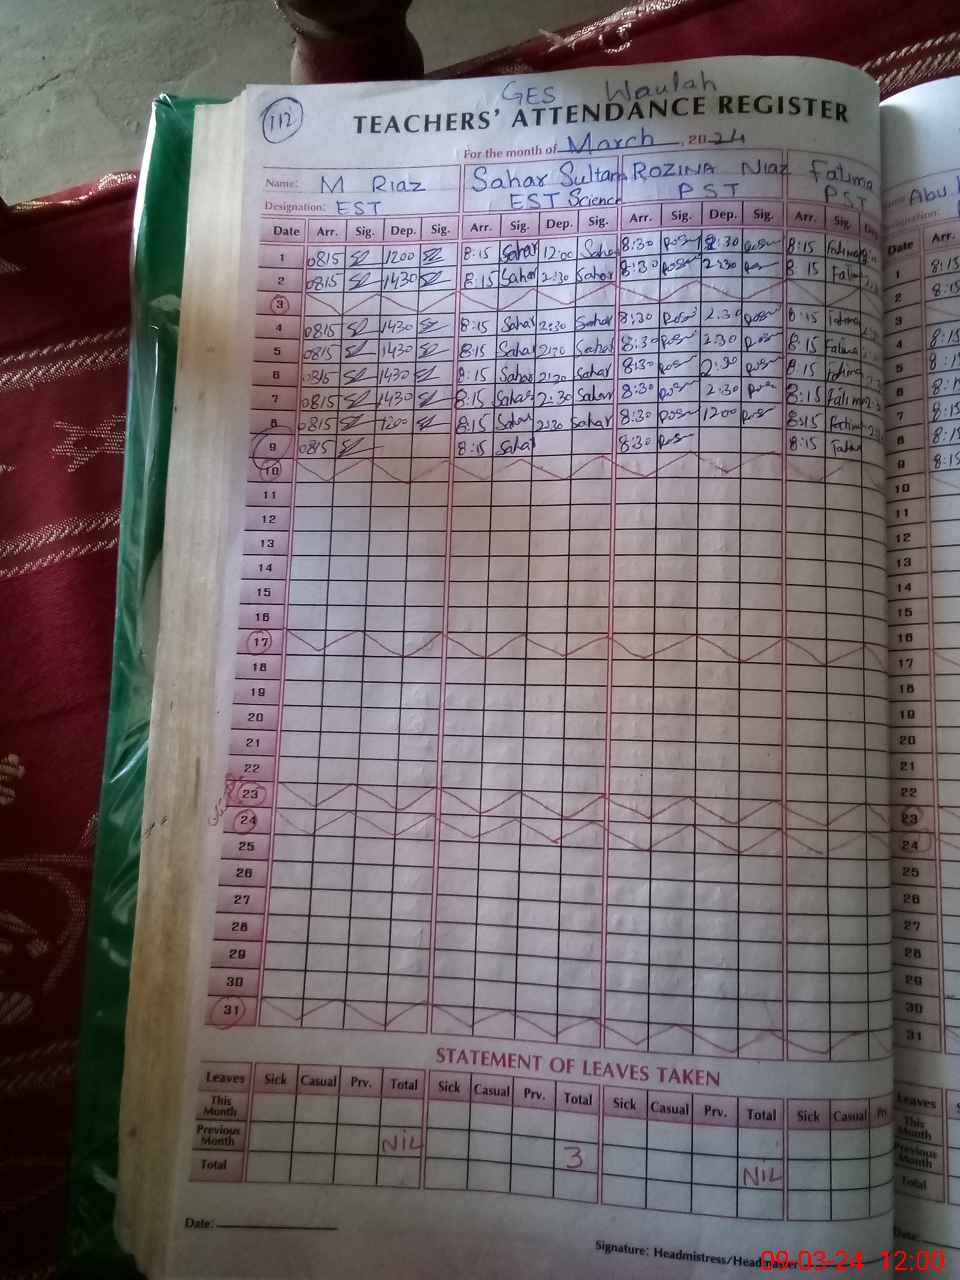 112
GES Waulah
TEACHERS' ATTENDANCE REGISTER
For the month of March, 2024
Name: M Riaz Sahar Sultana ROZINA Niaz Fatima
Designation: EST EST Science PST PST
Date Arr. Sig. Dep. Sig. Arr. Sig. Dep. Sig. Arr. Sig. Dep. Sig. Arr. Sig. Dep
1 0815 1200 8:15 Sahar 12:00 Sahar 8:30 2:30 8:15 Fatima
2 0815 1430 8:15 Sahar 2:30 Sahar 8:30 2:30 8:15 Fatima
3
4 0815 1430 8:15 Sahar 2:30 Sahar 8:30 2:30 8:15 Fatima
5 0815 1430 8:15 Sahar 2:30 Sahar 8:30 2:30 8:15 Fatima
6 0815 1430 8:15 Sahar 2:30 Sahar 8:30 2:30 8:15 Fatima
7 0815 1430 8:15 Sahar 2:30 Sahar 8:30 2:30 8:15 Fatima
8 0815 1200 8:15 Sahar 2:30 Sahar 8:30 1200 8:15 Fatima
9 0815 8:15 Sahar 8:30 8:15
10
11
12
13
14
15
16
17
18
19
20
21
22
23
24
25
26
27
28
29
30
31
STATEMENT OF LEAVES TAKEN
Leaves Sick Casual Prv. Total Sick Casual Prv. Total Sick Casual Prv. Total Sick Casual Prv
This Month
Previous Month NiL 3 NiL
Total
Date:
Signature: Headmistress/Headmaster
Name Abu
Date Arr.
1 8:15
2 8:15
3
4 8:15
5 8:15
6 8:15
7 8:15
8 8:15
9 8:15
10
11
12
13
14
15
16
17
18
19
20
21
22
23
24
25
26
27
28
29
30
31
Leaves
This Month
Previous Month
Total
Date:
09-03-24 12:00